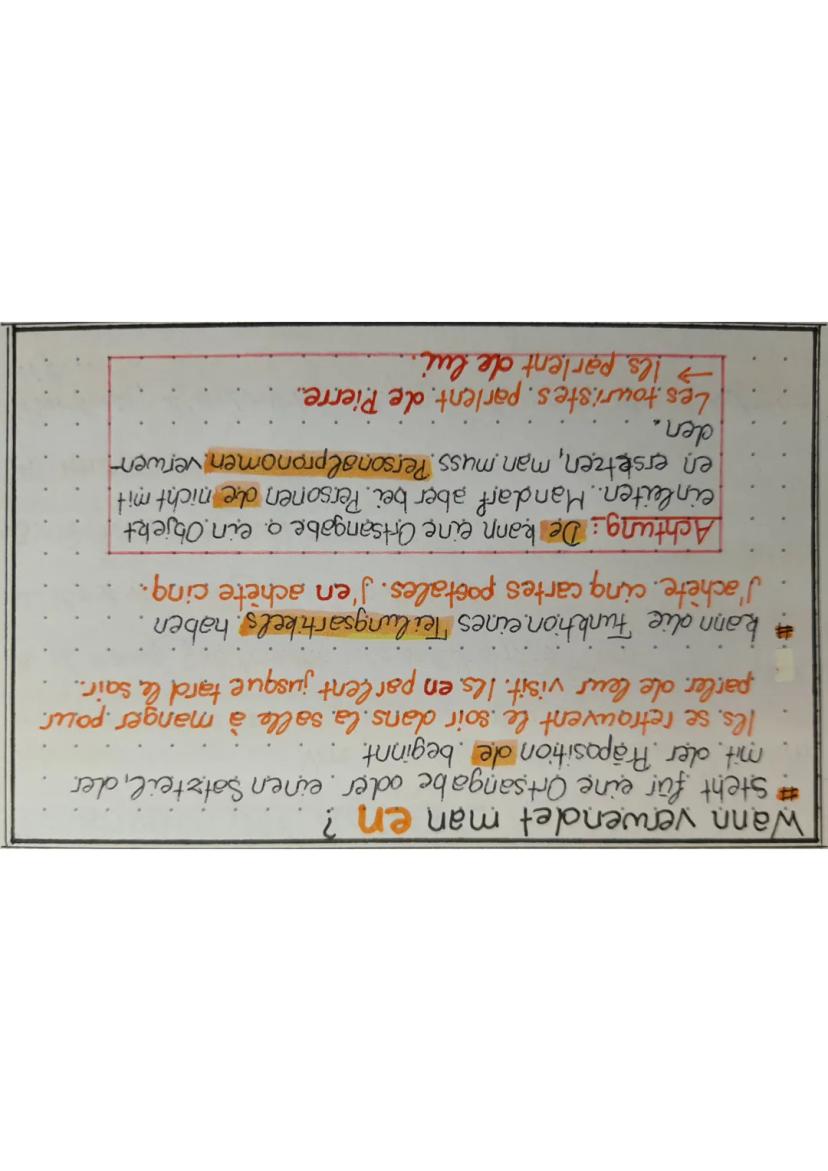 Wann verwendet man en?
# steht für eine Ortsangabe oder einen Satzteil, der
mit der Präposition de beginnt
Ils se retrouvent le soir dans la salle à manger pour
parler de leur visit. Ils en parlent jusque tard le soir.
# kann die Funktion eines Teilungsartikels haben
J'achète cinq cartes postales. J'en achète cinq.
Achtung: De kann eine Ortsangabe o. ein Objekt
einleiten. Man darf aber bei Personen die nicht mit
en ersetzen, man muss Personalpronomen verwen-
den.
Les touristes parlent de Pierre.
→ Ils parlent de lui.